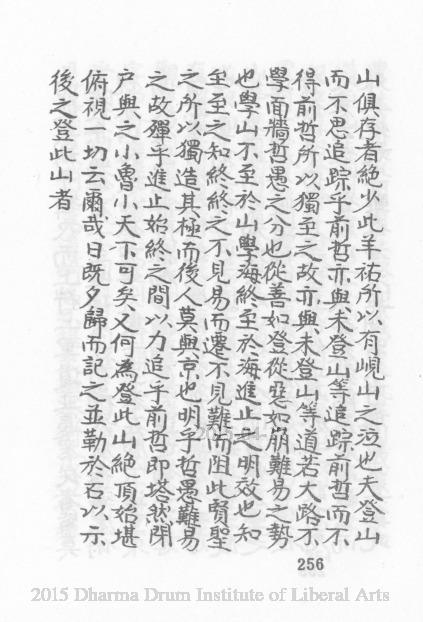 山俱存者絶少此羊祜所以有峴山之泣也夫登山
而不思追踪乎前哲亦與未登山等追踪前哲而不
得前哲所以獨至之故亦與未登山等道若大路不
學面牆哲愚之分也從善如登從惡如崩難易之勢
也學山不至於山學海終至於海進止之明效也知
至至之知終終之不見易而遷不見難而阻此賢聖
之所以獨造其極而後人莫與京也明乎哲愚難易
之故殫乎進止始終之間以力追乎前哲即塔然閉
户與之小魯小天下可矣又何為登此山絶頂始堪
俯視一切云爾哉日既夕歸而記之並勒於石以示
後之登此山者
256
2015 Dharma Drum Institute of Liberal Arts